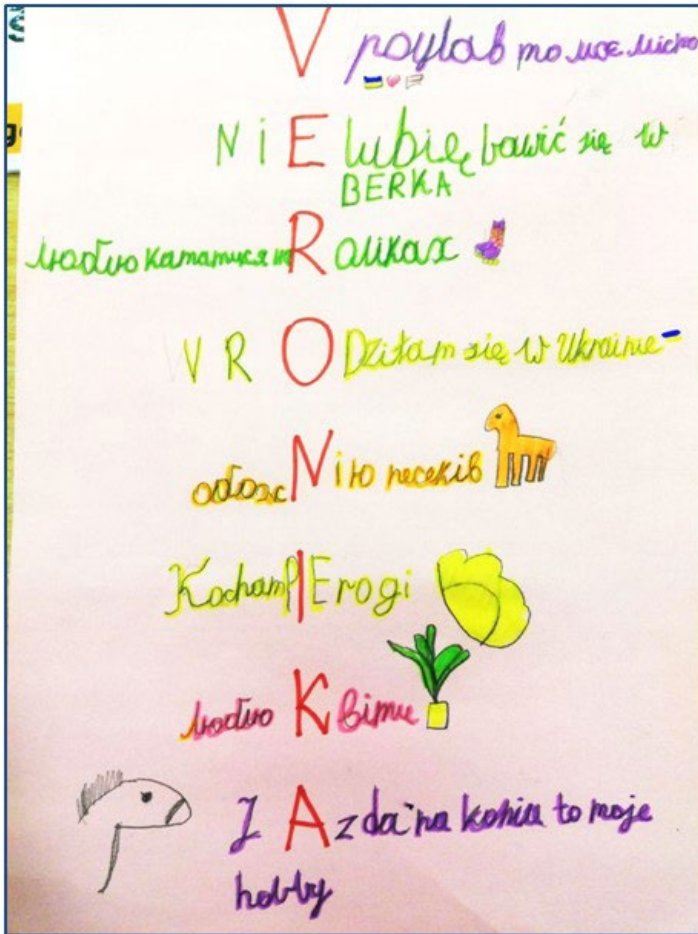 Vроулав то моє місто
NiE lubię bawić się w
BERKA
люблю кататися на Rоликах
VRODziłam się w Ukrainie
обожNію песеків
Kocham PIErogi
люблю Kвіти
JAzda na koniu to moje
hobby